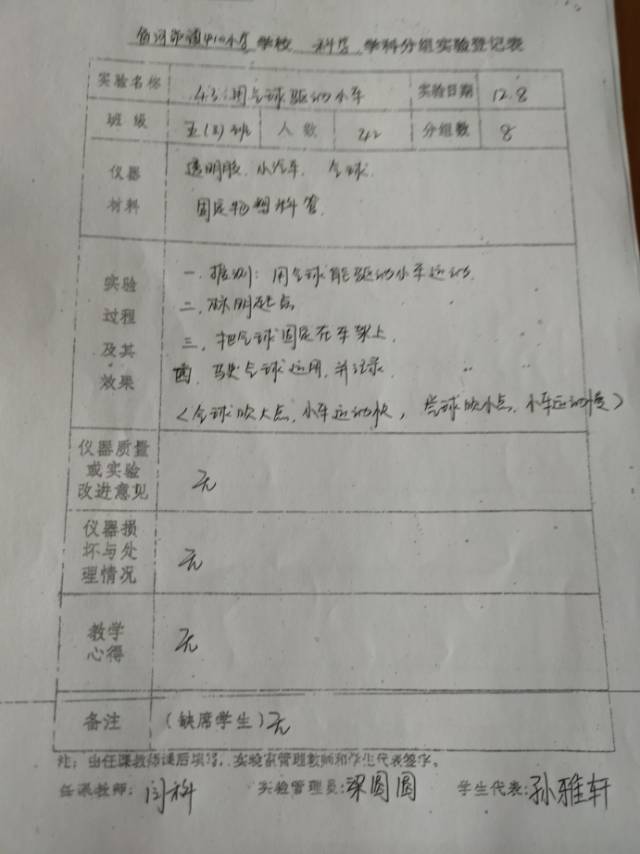 学校 科学 学科分组实验登记表
实验名称 4.3:用气球驱动小车 实验日期 12.8
班级 五(2)班 人数 42 分组数 8
仪器材料 透明胶. 小汽车. 气球.
固定物塑料管.
实验过程及其效果 一. 推测: 用气球能驱动小车运动.
二. 标明起点
三. 把气球固定在车架上.
四. 气球 并记录.
(气球吹大点, 小车运动快, 气球吹小点, 小车运动慢)
仪器质量或实验改进意见 无
仪器损坏与处理情况 无
教学心得 无
备注 (缺席学生)无
注: 由任课教师课后填写, 实验室管理教师和学生代表签字。
任课教师: 闫科 实验管理员:梁圆圆 学生代表:孙雅轩